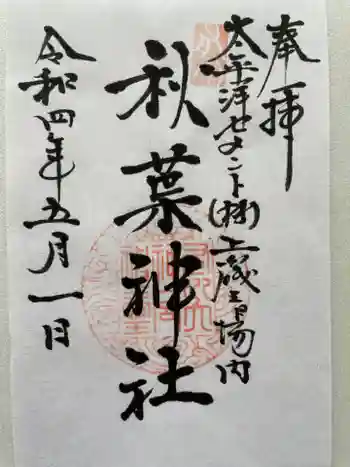 奉拝
太平洋セメント(株)土蔵工場内
秋葉神社
令和四年五月一日